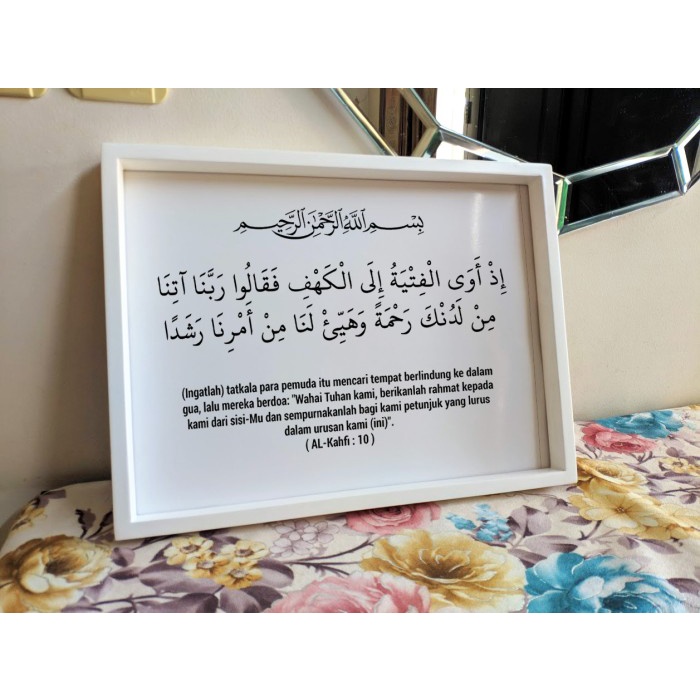 بِسْمِ اللَّهِ الرَّحْمَٰنِ الرَّحِيمِ
إِذْ أَوَى الْفِتْيَةُ إِلَى الْكَهْفِ فَقَالُوا رَبَّنَا آتِنَا
مِنْ لَدُنْكَ رَحْمَةً وَهَيِّئْ لَنَا مِنْ أَمْرِنَا رَشَدًا
(Ingatlah) tatkala para pemuda itu mencari tempat berlindung ke dalam
gua, lalu mereka berdoa: "Wahai Tuhan kami, berikanlah rahmat kepada
kami dari sisi-Mu dan sempurnakanlah bagi kami petunjuk yang lurus
dalam urusan kami (ini)".
( AL-Kahfi : 10 )